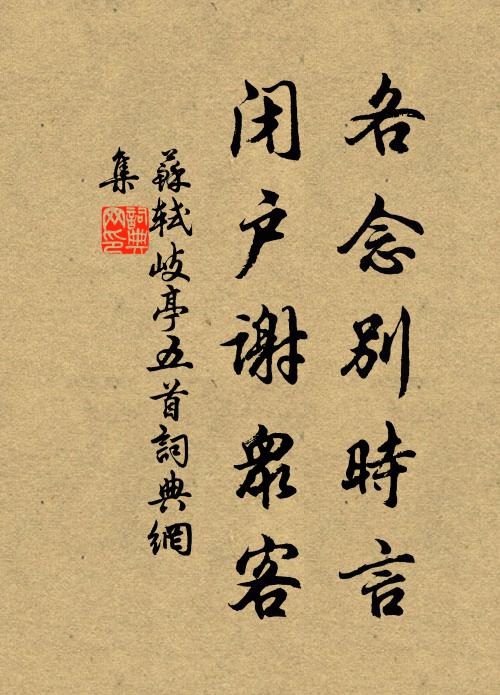 各念别時言
闭户谢眾客
蘇軾岐亭五首詞典網
集
詞典網印